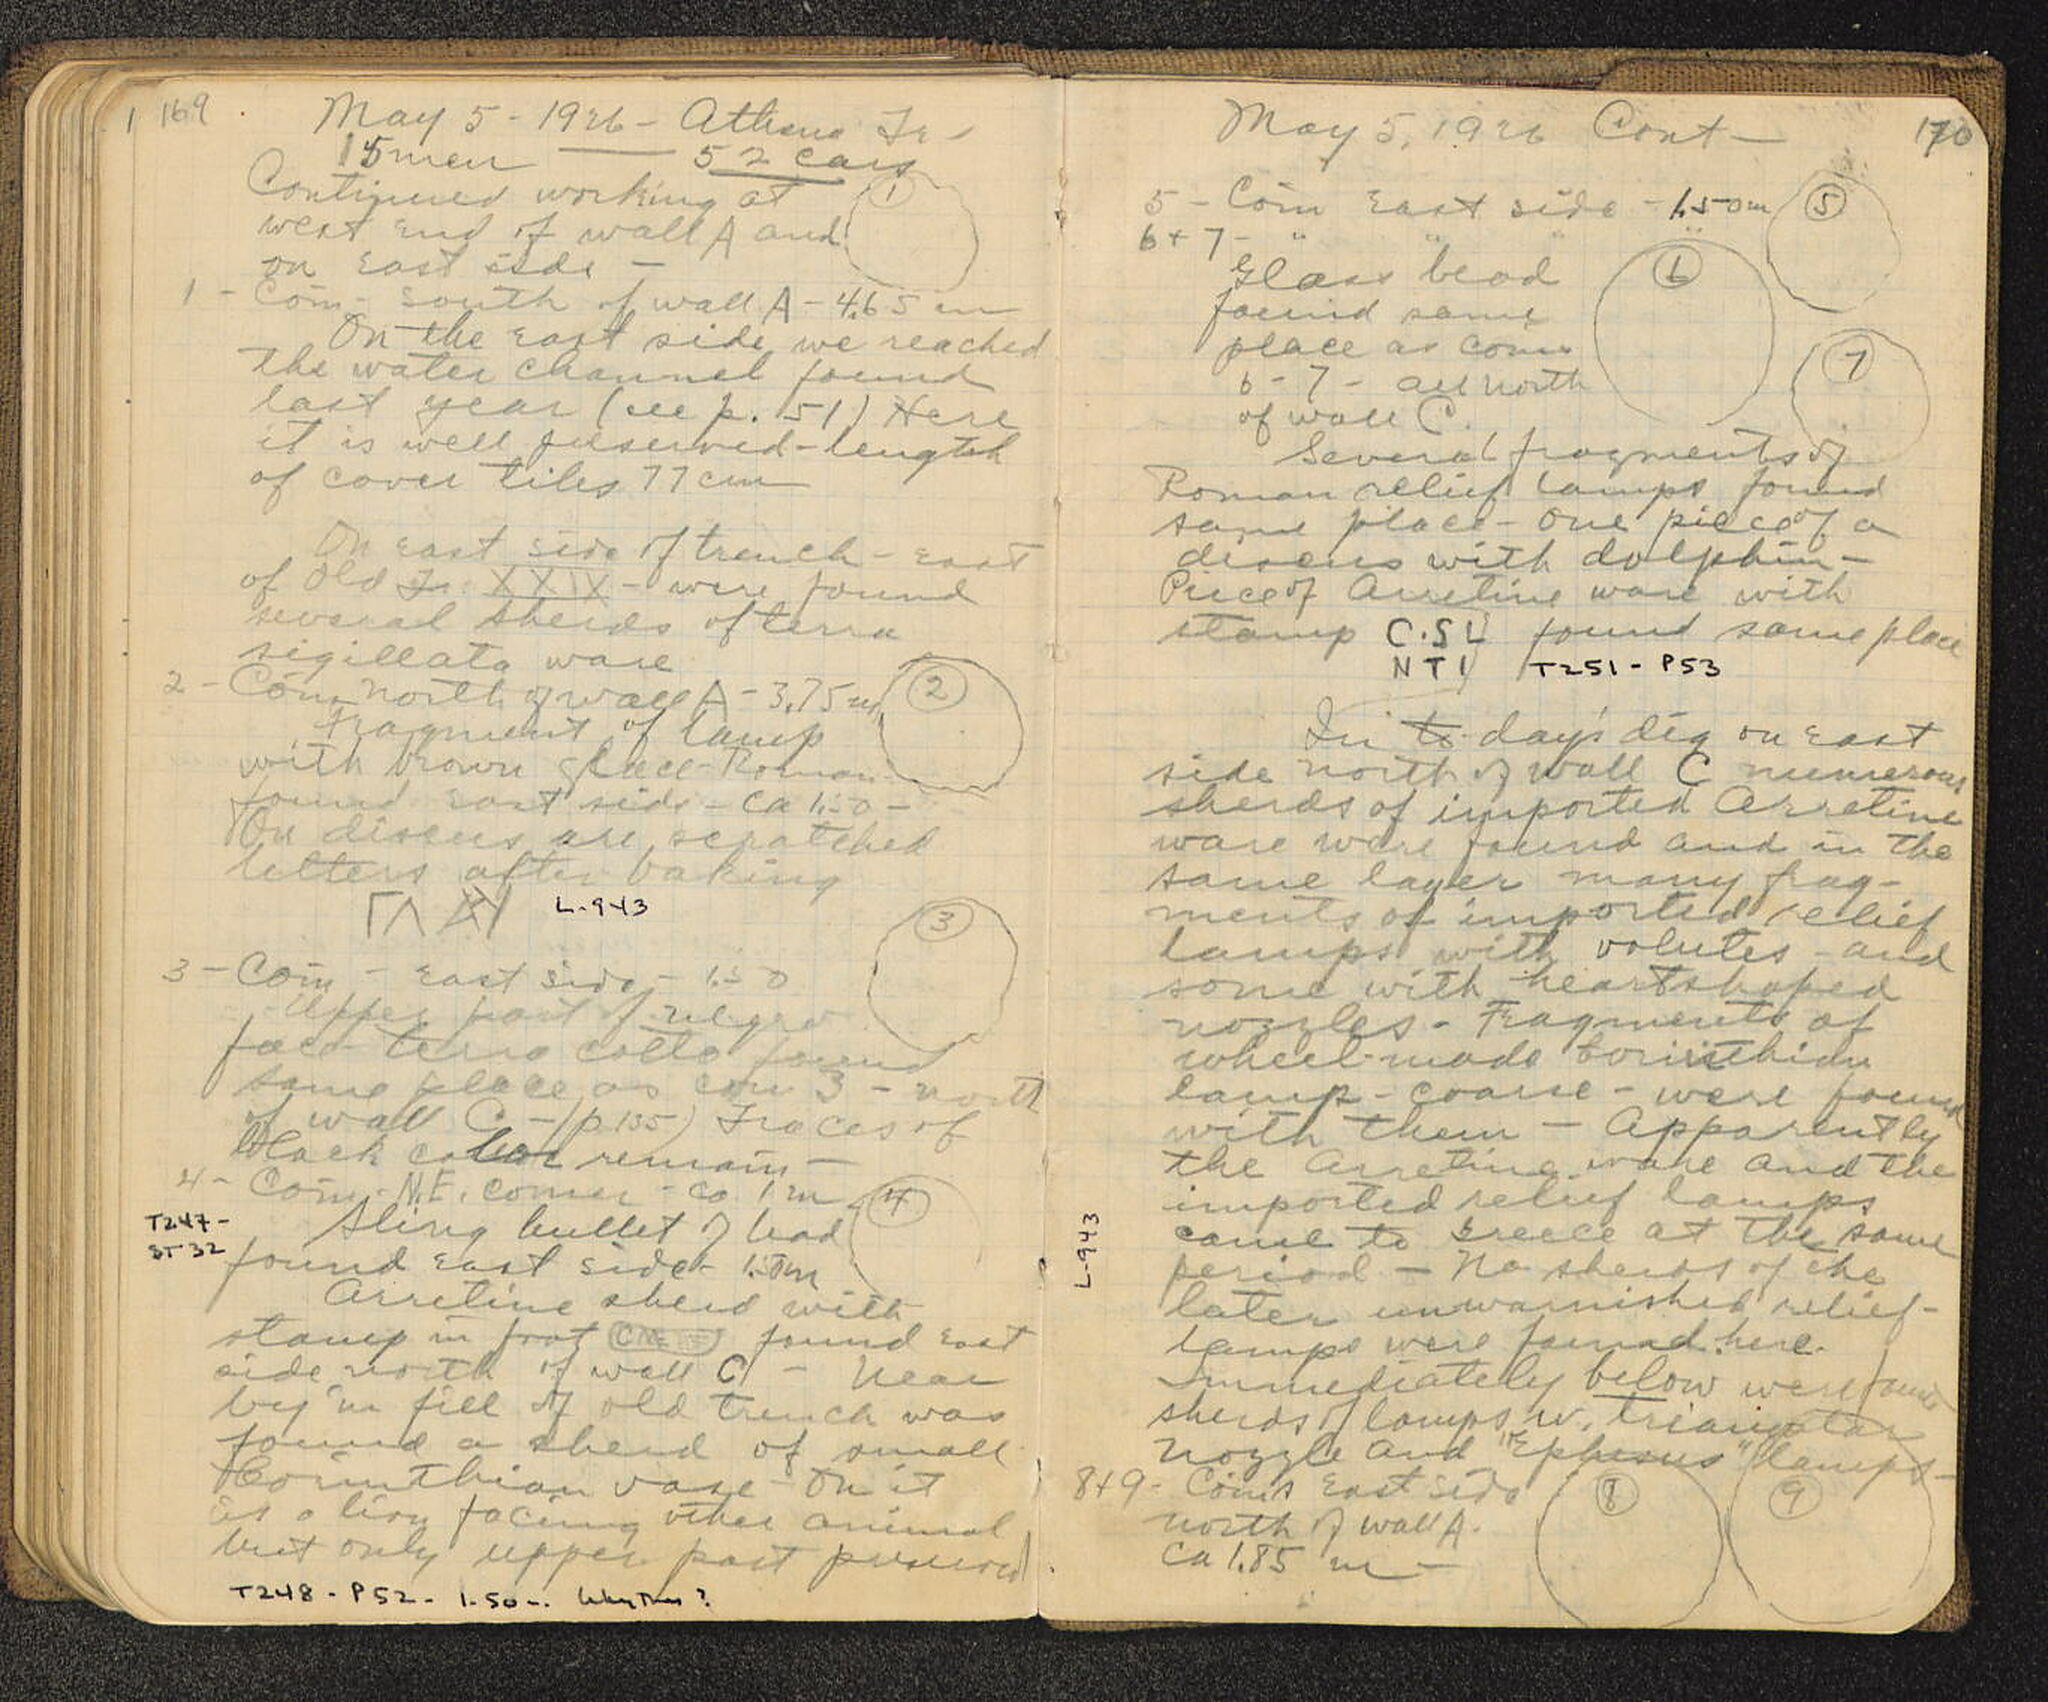 169
May 5 - 1926 - Athens Tr -
15 men — 52 cars
Continued working at
west end of wall A and
on east side -
1
1 - Coin - south of wall A - 4.65 m
On the east side we reached
the water channel found
last year (see p. 51) Here
it is well preserved - length
of cover tiles 77 cm
On east side of trench - east
of old Tr. XXIX - were found
several sherds of terra
sigillata ware
2 - Coin north of wall A - 3.75 m
2
Fragment of lamp
with brown glaze - Roman -
found east side - ca 1.50 -
On discus are scratched
letters after baking
L-943
3
3 - Coin - east side - 1.50
Upper part of negro
face terra cotta found
same place as coin 3 - north
of wall C - (p. 135) Traces of
black color remain -
4 - Coin - N.E. corner - ca 1 m
4
T247-
ST 32
Sling bullet of lead
found east side - 1.50 m
Arretine sherd with
stamp in foot found east
side north of wall C - Near
by in fill of old trench was
found a sherd of small
Corinthian vase - On it
is a lion facing other animal
but only upper part preserved
T248 - P52 - 1.50 -. Why this?
May 5, 1926 Cont -
170
5 - Coin east side - 1.50 m
5
6 + 7 - " " " "
6
Glass bead
found same
place as coins
7
6 - 7 - all north
of wall C.
Several fragments of
Roman relief lamps found
same place - one piece of a
discus with dolphin -
Piece of Arretine ware with
stamp C.SL found same place
NTI T251 - P53
In to-day's dig on east
side north of wall C numerous
sherds of imported Arretine
ware were found and in the
same layer many frag-
ments of imported relief
lamps with volutes - and
some with heartshaped
nozzles - Fragments of
wheel-made Corinthian
lamp - coarse - were found
with them - Apparently
the Arretine ware and the
imported relief lamps
came to Greece at the same
L-943
period - No sherds of the
later unwarnished relief-
lamps were found here.
Immediately below were found
sherds of lamps w. triangular
nozzle and "Ephesus" lamps -
8 + 9 - Coins east side
8
9
north of wall A.
ca 1.85 m -